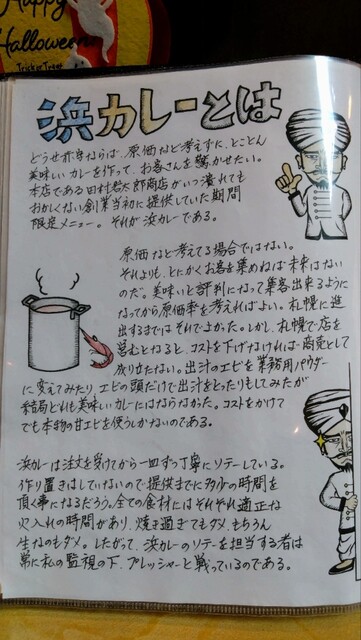 Happy
Halloween
Trick or Treat
浜カレーとは
どうせ赤字ならば、原価など考えずに、とことん
美味しいカレーを作って、お客さんを驚かせたい。
本店である田村岩太郎商店がいつ潰れても
おかしくない創業当初に提供していた期間
限定メニュー。それが浜カレーである。
原価など考えてる場合ではない。
それよりも、とにかくお客を集めねば未来はない
のだ。美味いと評判になって集客出来るように
なってから原価率を考えればよい。札幌に進
出するまではそれでよかった。しかし、札幌で店を
営むとなると、コストを下げなければ商売として
成り立たない。出汁のエビを業務用パウダー
に変えてみたり、エビの頭だけで出汁をとったりもしてみたが
結局どれも美味しいカレーにはならなかった。コストをかけて
でも本物の甘エビを使うしかないのである。
浜カレーは注文を受けてから一皿ずつ丁寧にソテーしている。
作り置きはしていないので提供までに多少の時間を
頂く事になるだろう。全ての食材にはそれぞれ適正な
火入れの時間があり、焼き過ぎてもダメ、もちろん
生なのもダメ。したがって、浜カレーのソテーを担当する者は
常に私の監視の下、プレッシャーと戦っているのである。